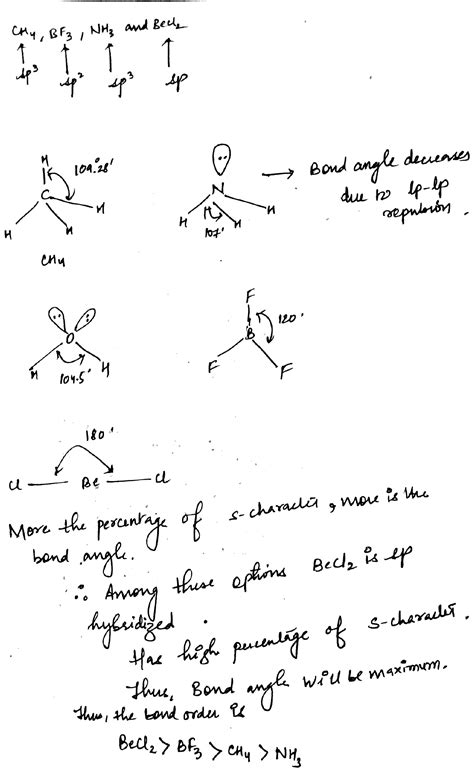 CH4, BF3, NH3 and BeCl2
sp3 sp2 sp3 sp
109.28'
H
C
H H H
CH4
N
H H H
107'
→ Bond angle decreases
due to lp-lp
repulsion.
O
H H
104.5'
F
B
F F
120'
180'
Cl — Be — Cl
More the percentage of s-character, more is the
bond angle.
∴ Among these options BeCl2 is sp
hybridized.
Has high percentage of s-character.
Thus, Bond angle will be maximum.
Thus, the bond order is
BeCl2 > BF3 > CH4 > NH3